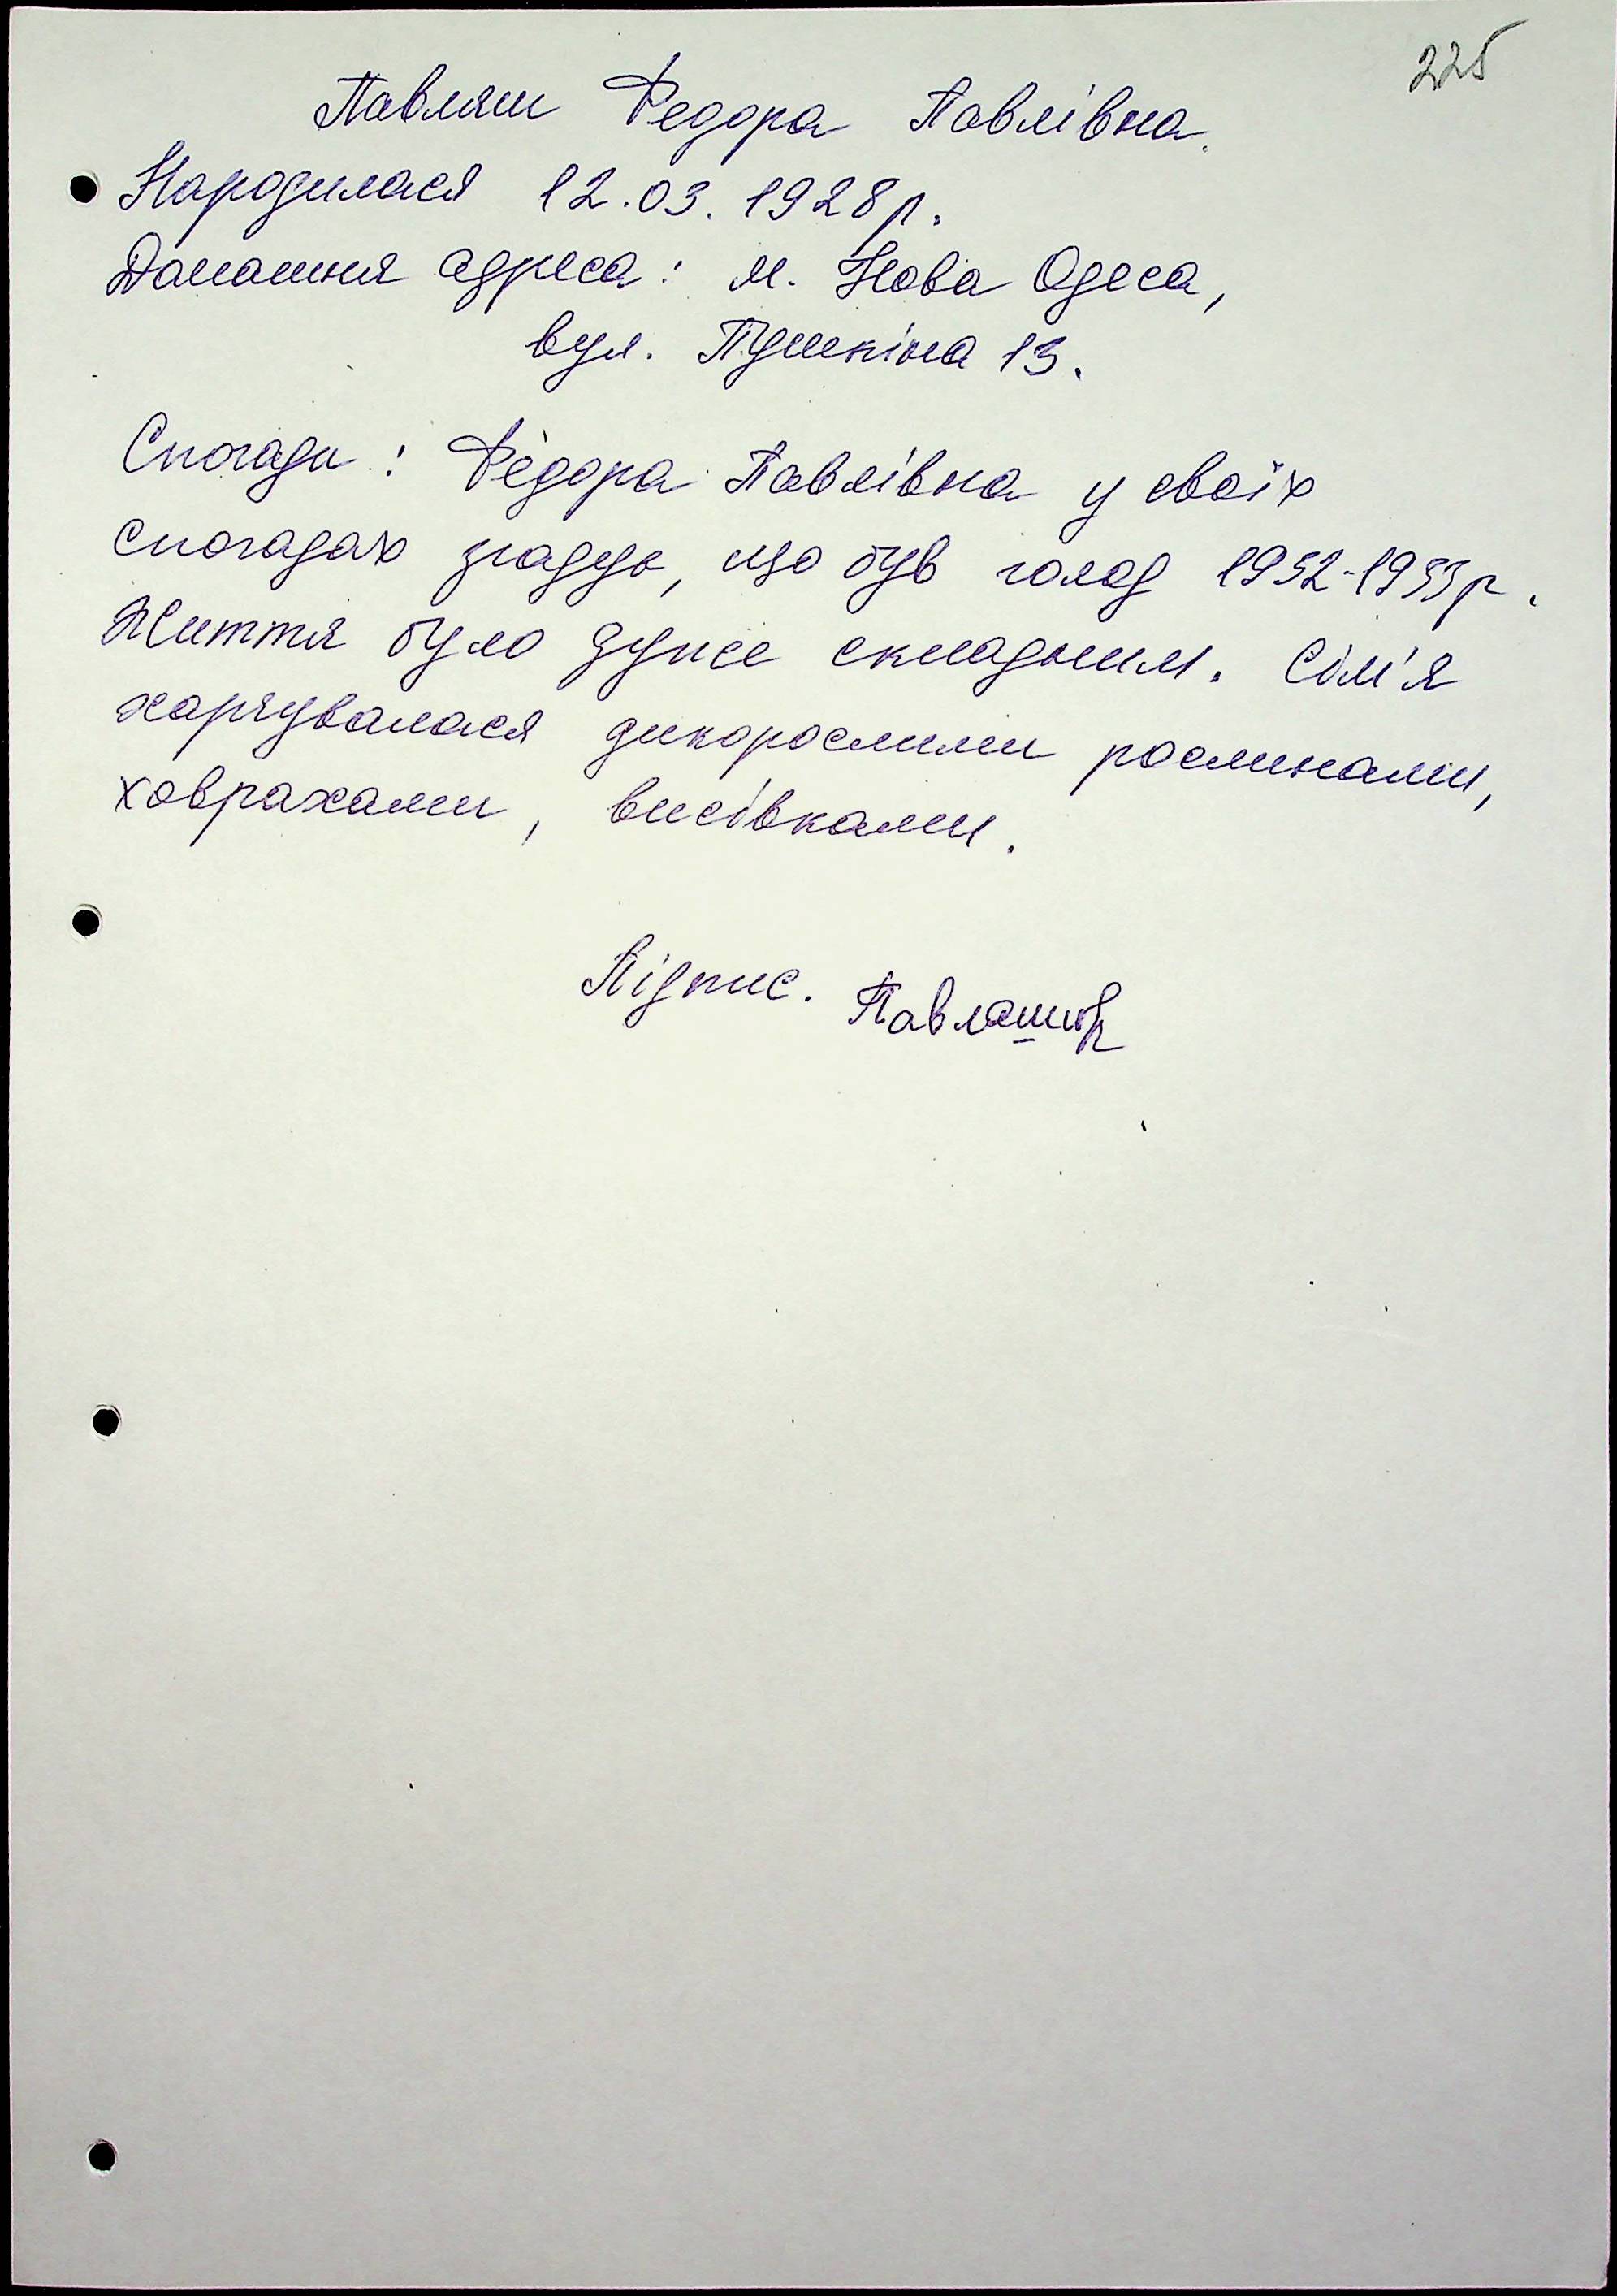 225
Павляш Федора Павлівна.
Народилася 12.03.1928р.
Домашня адреса: м. Нова Одеса,
вул. Пушкіна 13.
Спогади: Федора Павлівна у своїх
спогадах згадує, що був голод 1932-1933р.
Життя було дуже складним. Сім'я
харчувалася дикорослими рослинами,
ховрахами, висівками.
Підпис.